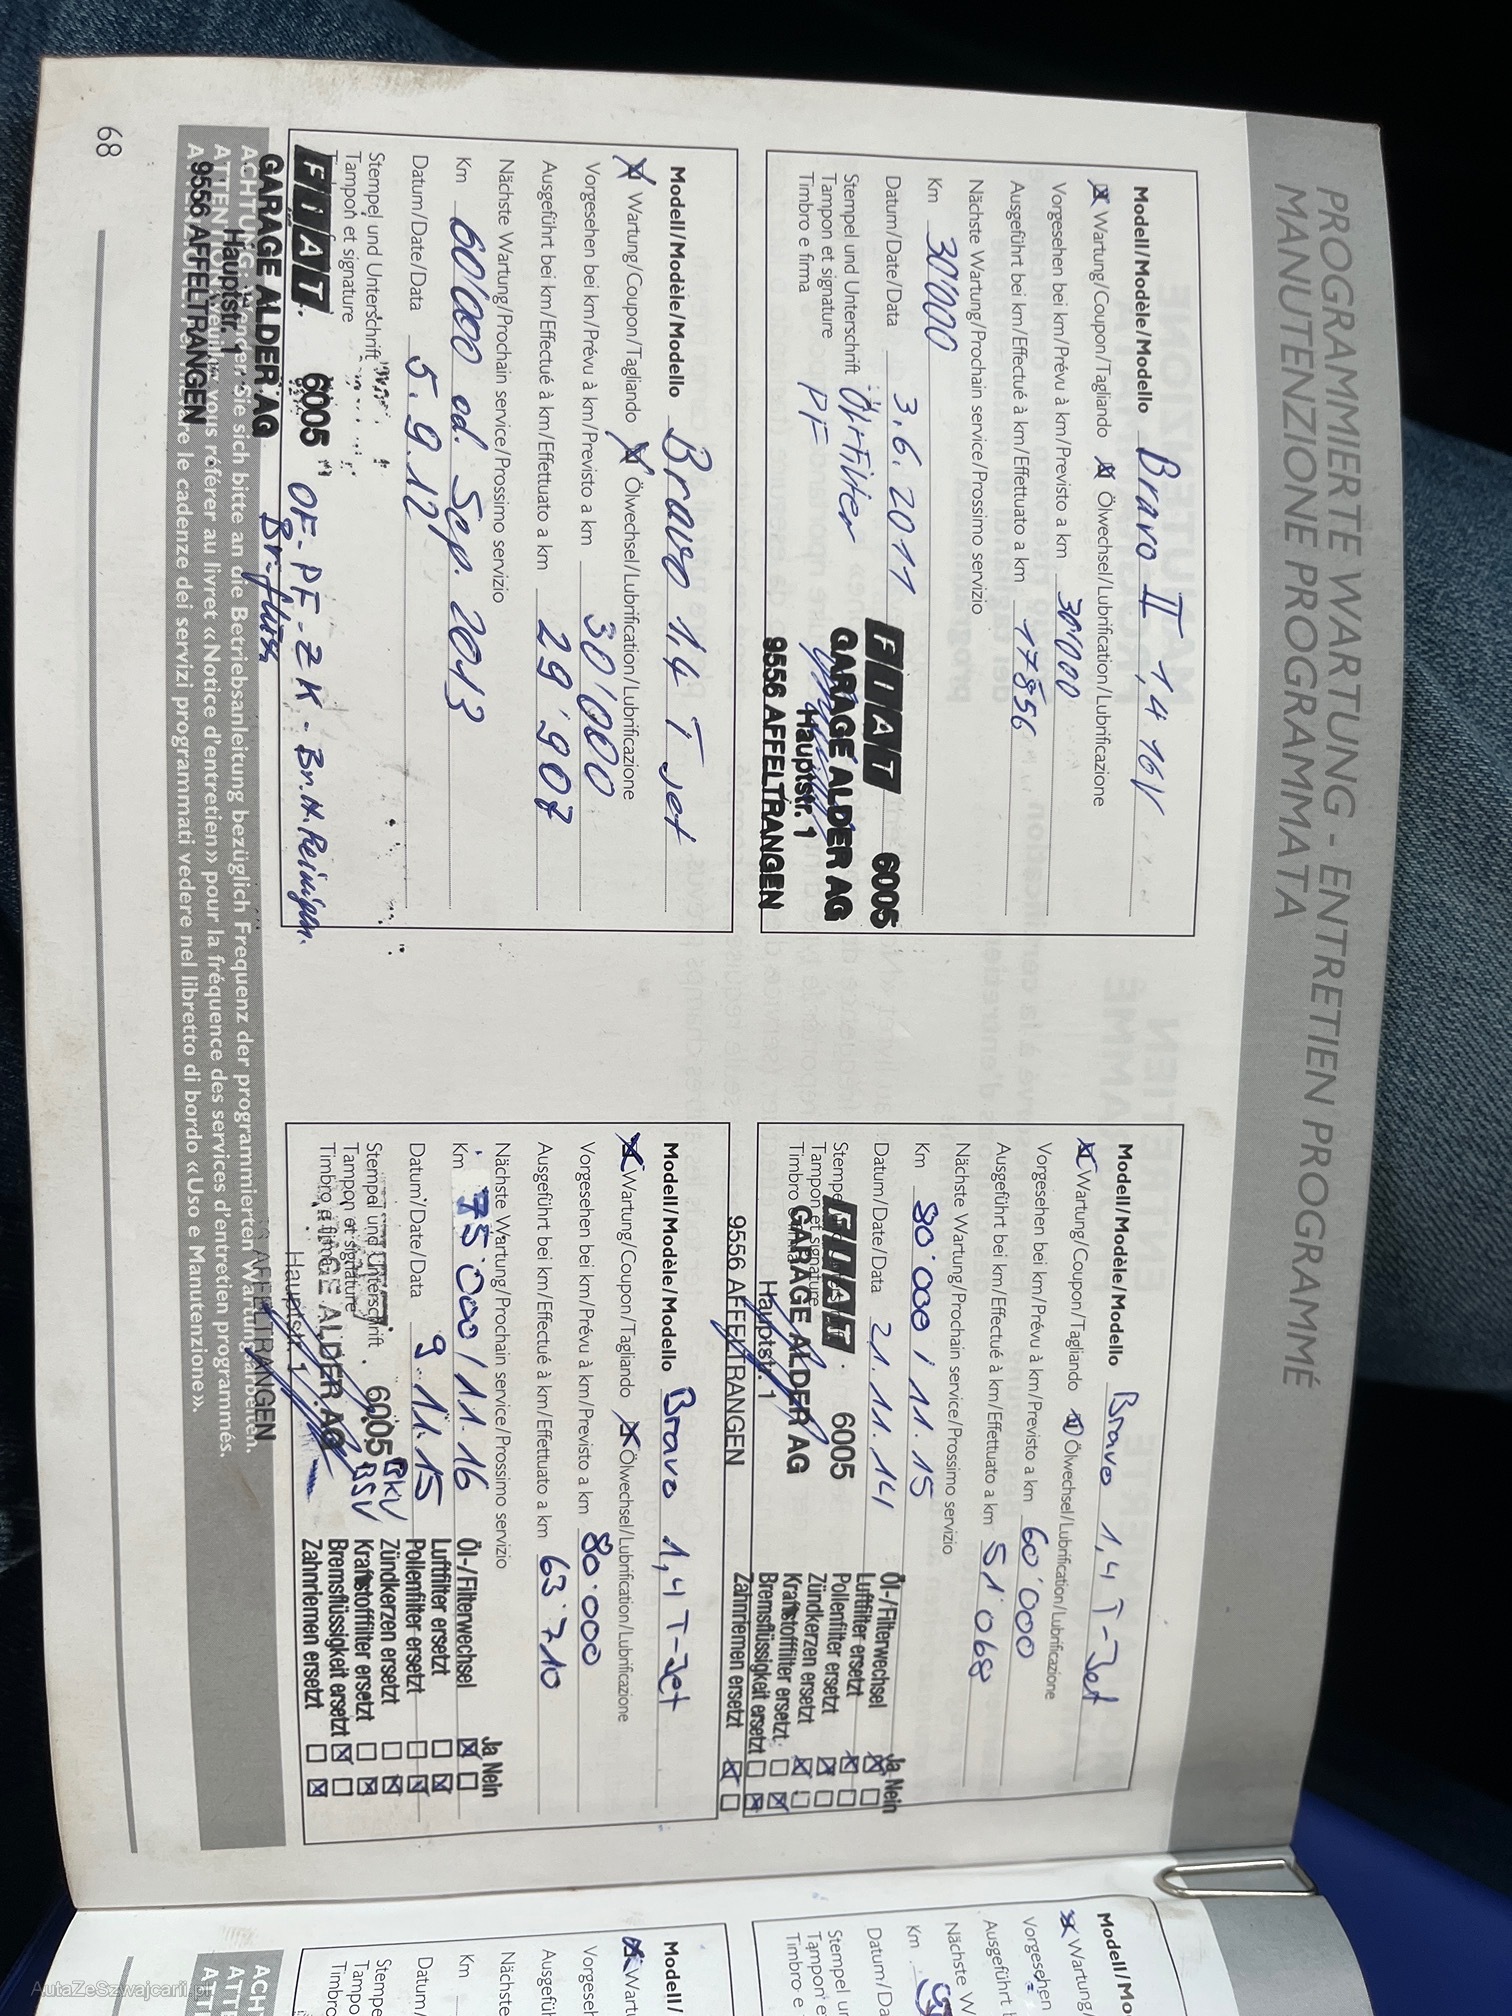 PROGRAMMIERTE WARTUNG - ENTRETIEN PROGRAMMÉ
MANUTENZIONE PROGRAMMATA
Modell/Modèle/Modello Bravo II 1,4 16V
Wartung/Coupon/Tagliando Ölwechsel/Lubrification/Lubrificazione
Vorgesehen bei km/Prévu à km/Previsto a km 30'000
Ausgeführt bei km/Effectué à km/Effettuato a km 17856
Nächste Wartung/Prochain service/Prossimo servizio
Km 30'000
Datum/Date/Data 3.6.2011
Stempel und Unterschrift Ölfilter
Tampon et signature PF
Timbro e firma
FIAT 6005
GARAGE ALDER AG
Hauptstr. 1
9556 AFFELTRANGEN
Modell/Modèle/Modello Bravo 1.4 T Jet
Wartung/Coupon/Tagliando Ölwechsel/Lubrification/Lubrificazione
Vorgesehen bei km/Prévu à km/Previsto a km 30'000
Ausgeführt bei km/Effectué à km/Effettuato a km 29'907
Nächste Wartung/Prochain service/Prossimo servizio
Km 60'000 od. Sep. 2013
Datum/Date/Data 5.9.12
Stempel und Unterschrift
Tampon et signature
FIAT 6005 OF-PF-ZK-Br.H.Reinigen.
GARAGE ALDER AG
Hauptstr. 1
9556 AFFELTRANGEN
Modell/Modèle/Modello Bravo 1,4 T-Jet
Wartung/Coupon/Tagliando Ölwechsel/Lubrification/Lubrificazione
Vorgesehen bei km/Prévu à km/Previsto a km 60'000
Ausgeführt bei km/Effectué à km/Effettuato a km 51'068
Nächste Wartung/Prochain service/Prossimo servizio
Km 80'000 / 11.15
Datum/Date/Data 21.11.14
Tampon et signature
Timbro
FIAT 6005
GARAGE ALDER AG
Hauptstr. 1
9556 AFFELTRANGEN
Ja Nein
Öl-/Filterwechsel
Luftfilter ersetzt
Pollenfilter ersetzt
Zündkerzen ersetzt
Kraftstofffilter ersetzt
Bremsflüssigkeit ersetzt
Zahnriemen ersetzt
Modell/Modèle/Modello Bravo 1,4 T-Jet
Wartung/Coupon/Tagliando Ölwechsel/Lubrification/Lubrificazione
Vorgesehen bei km/Prévu à km/Previsto a km 80'000
Ausgeführt bei km/Effectué à km/Effettuato a km 63'710
Nächste Wartung/Prochain service/Prossimo servizio
Km 75'000 / 11.16
Datum/Date/Data 9.11.15
Stempel und Unterschrift
Tampon et signature
Timbro e firma
6005
GARAGE ALDER AG
Hauptstr. 1
AFFELTRANGEN
Ja Nein
Öl-/Filterwechsel
Luftfilter ersetzt
Pollenfilter ersetzt
Zündkerzen ersetzt
Kraftstofffilter ersetzt
Bremsflüssigkeit ersetzt
Zahnriemen ersetzt
ACHTUNG: Sie sich bitte an die Betriebsanleitung bezüglich Frequenz der programmierten Wartungsarbeiten.
vous référer au livret «Notice d'entretien» pour la fréquence des services d'entretien programmés.
le cadenze dei servizi programmati vedere nel libretto di bordo «Uso e Manutenzione».
68
Modell/Mo
Wartung/
Vorgesehen
Ausgeführt
Nächste W
Km
Datum/Da
Stempel ur
Tampon e
Timbro e
Modell/
Wartu
Vorgeseh
Ausgefüh
Nächste
Km
Datum/
Stempe
Tampo
Timbro
ACH
ATT
AT
AutaZeSzwajcarii.pl